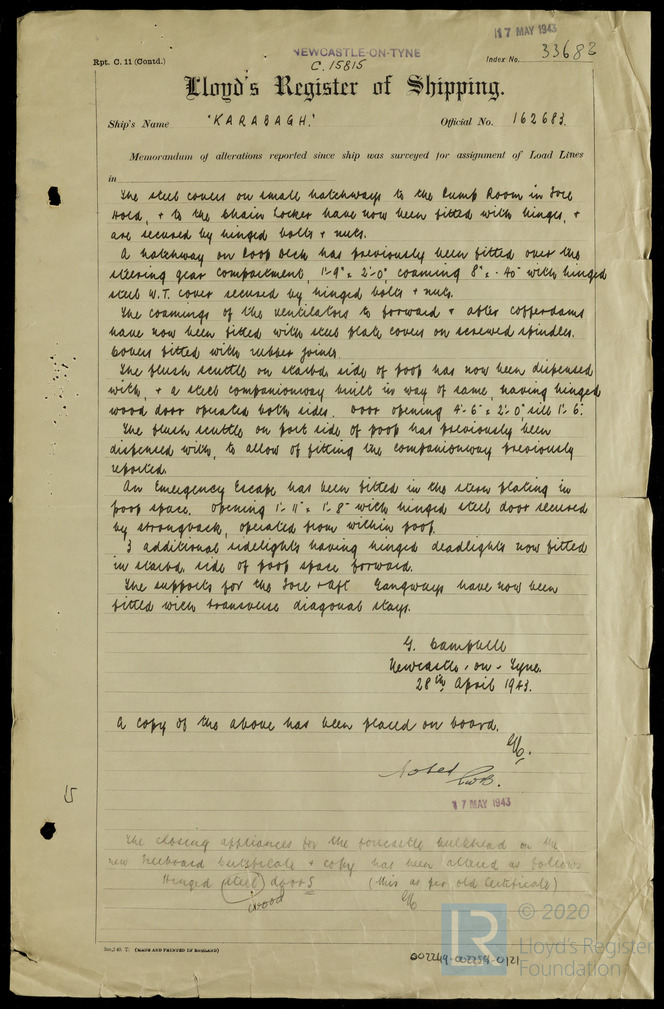 17 MAY 1943
NEWCASTLE-ON-TYNE
Rpt. C. 11 (Contd.)
C. 15815
Index No. 33682
Lloyd's Register of Shipping.
Ship's Name "KARABAGH." Official No. 162683.
Memorandum of alterations reported since ship was surveyed for assignment of Load Lines
in
The steel covers on small hatchways to the Pump Room in Fore
Hold, + to the Chain Locker have now been fitted with hinges, +
are secured by hinged bolts + nuts.
A hatchway on Poop Deck has previously been fitted over the
steering gear compartment, 1'-9" x 2'-0", coaming 8" x .40" with hinged
steel W.T. cover secured by hinged bolts + nuts.
The coamings of the ventilators to forward + after cofferdams
have now been fitted with steel plate covers on screwed spindles.
Covers fitted with rubber joints.
The flush scuttle on starbd. side of poop has now been dispensed
with, + a steel companionway built in way of same, having hinged
wood door operated both sides. Door opening 4'-6" x 2'-0", sill 1'-6".
The flush scuttle on port side of poop has previously been
dispensed with, to allow of fitting the companionway previously
reported.
An Emergency Escape has been fitted in the stern plating in
poop space. Opening 1'-11" x 1'-8" with hinged steel door secured
by strongback, operated from within poop.
3 additional sidelights having hinged deadlights now fitted
in starbd. side of poop space forward.
The supports for the Fore + Aft Gangways have now been
fitted with transverse diagonal stays.
G. Campbell
Newcastle-on-Tyne.
28th April 1943.
A copy of the above has been placed on board.
Noted
17 MAY 1943
15
The closing appliances for the forecastle bulkhead on the
new Freeboard Certificate + copy has been altered as follows
Hinged steel doors (this as per old Certificate)
wood
(MADE AND PRINTED IN ENGLAND)
002269-002254-0121
LR
© 2020
Lloyd's Register
Foundation